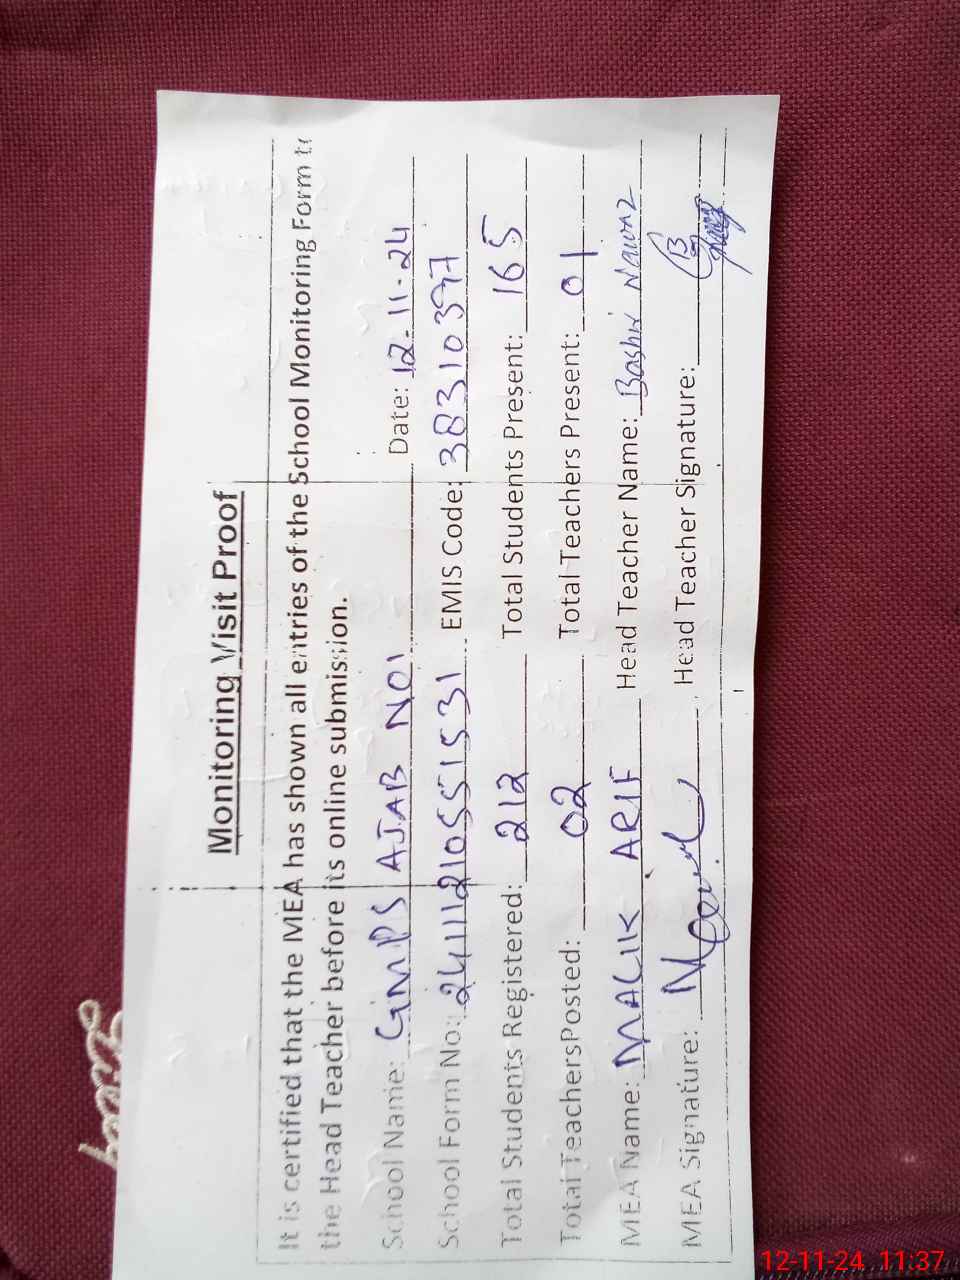 Monitoring Visit Proof
It is certified that the MEA has shown all entries of the School Monitoring Form to
the Head Teacher before its online submission.
School Name: GMPS AJAB NO1 Date: 12-11-24
School Form No: 241112105515 31 EMIS Code: 38310397
Total Students Registered: 212 Total Students Present: 165
Total TeachersPosted: 02 Total Teachers Present: 01
MEA Name: MALIK ARIF Head Teacher Name: Bashir Nawaz
MEA Signature: Head Teacher Signature:
12-11-24 11:37